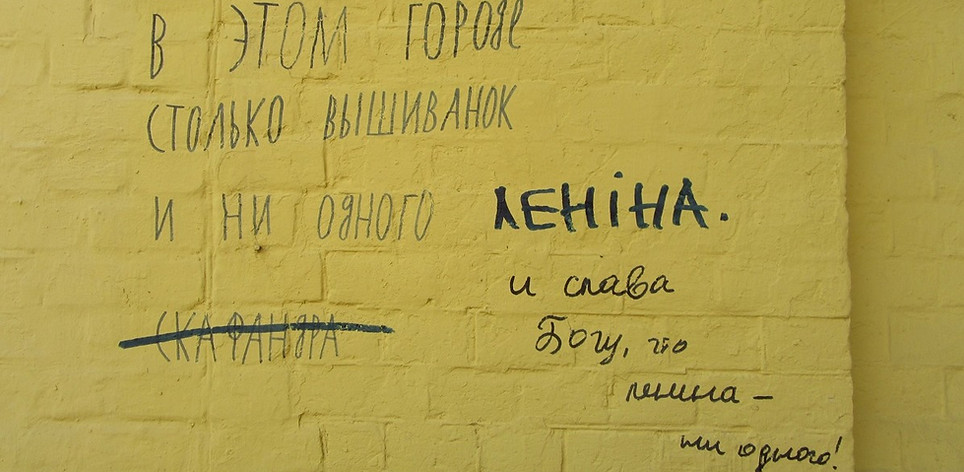 В ЭТОМ ГОРОДЕ
СТОЛЬКО ВЫШИВАНОК
И НИ ОДНОГО ЛЕНІНА.
СКАФАНДРА
и слава
Богу, что
ленина –
ни одного!